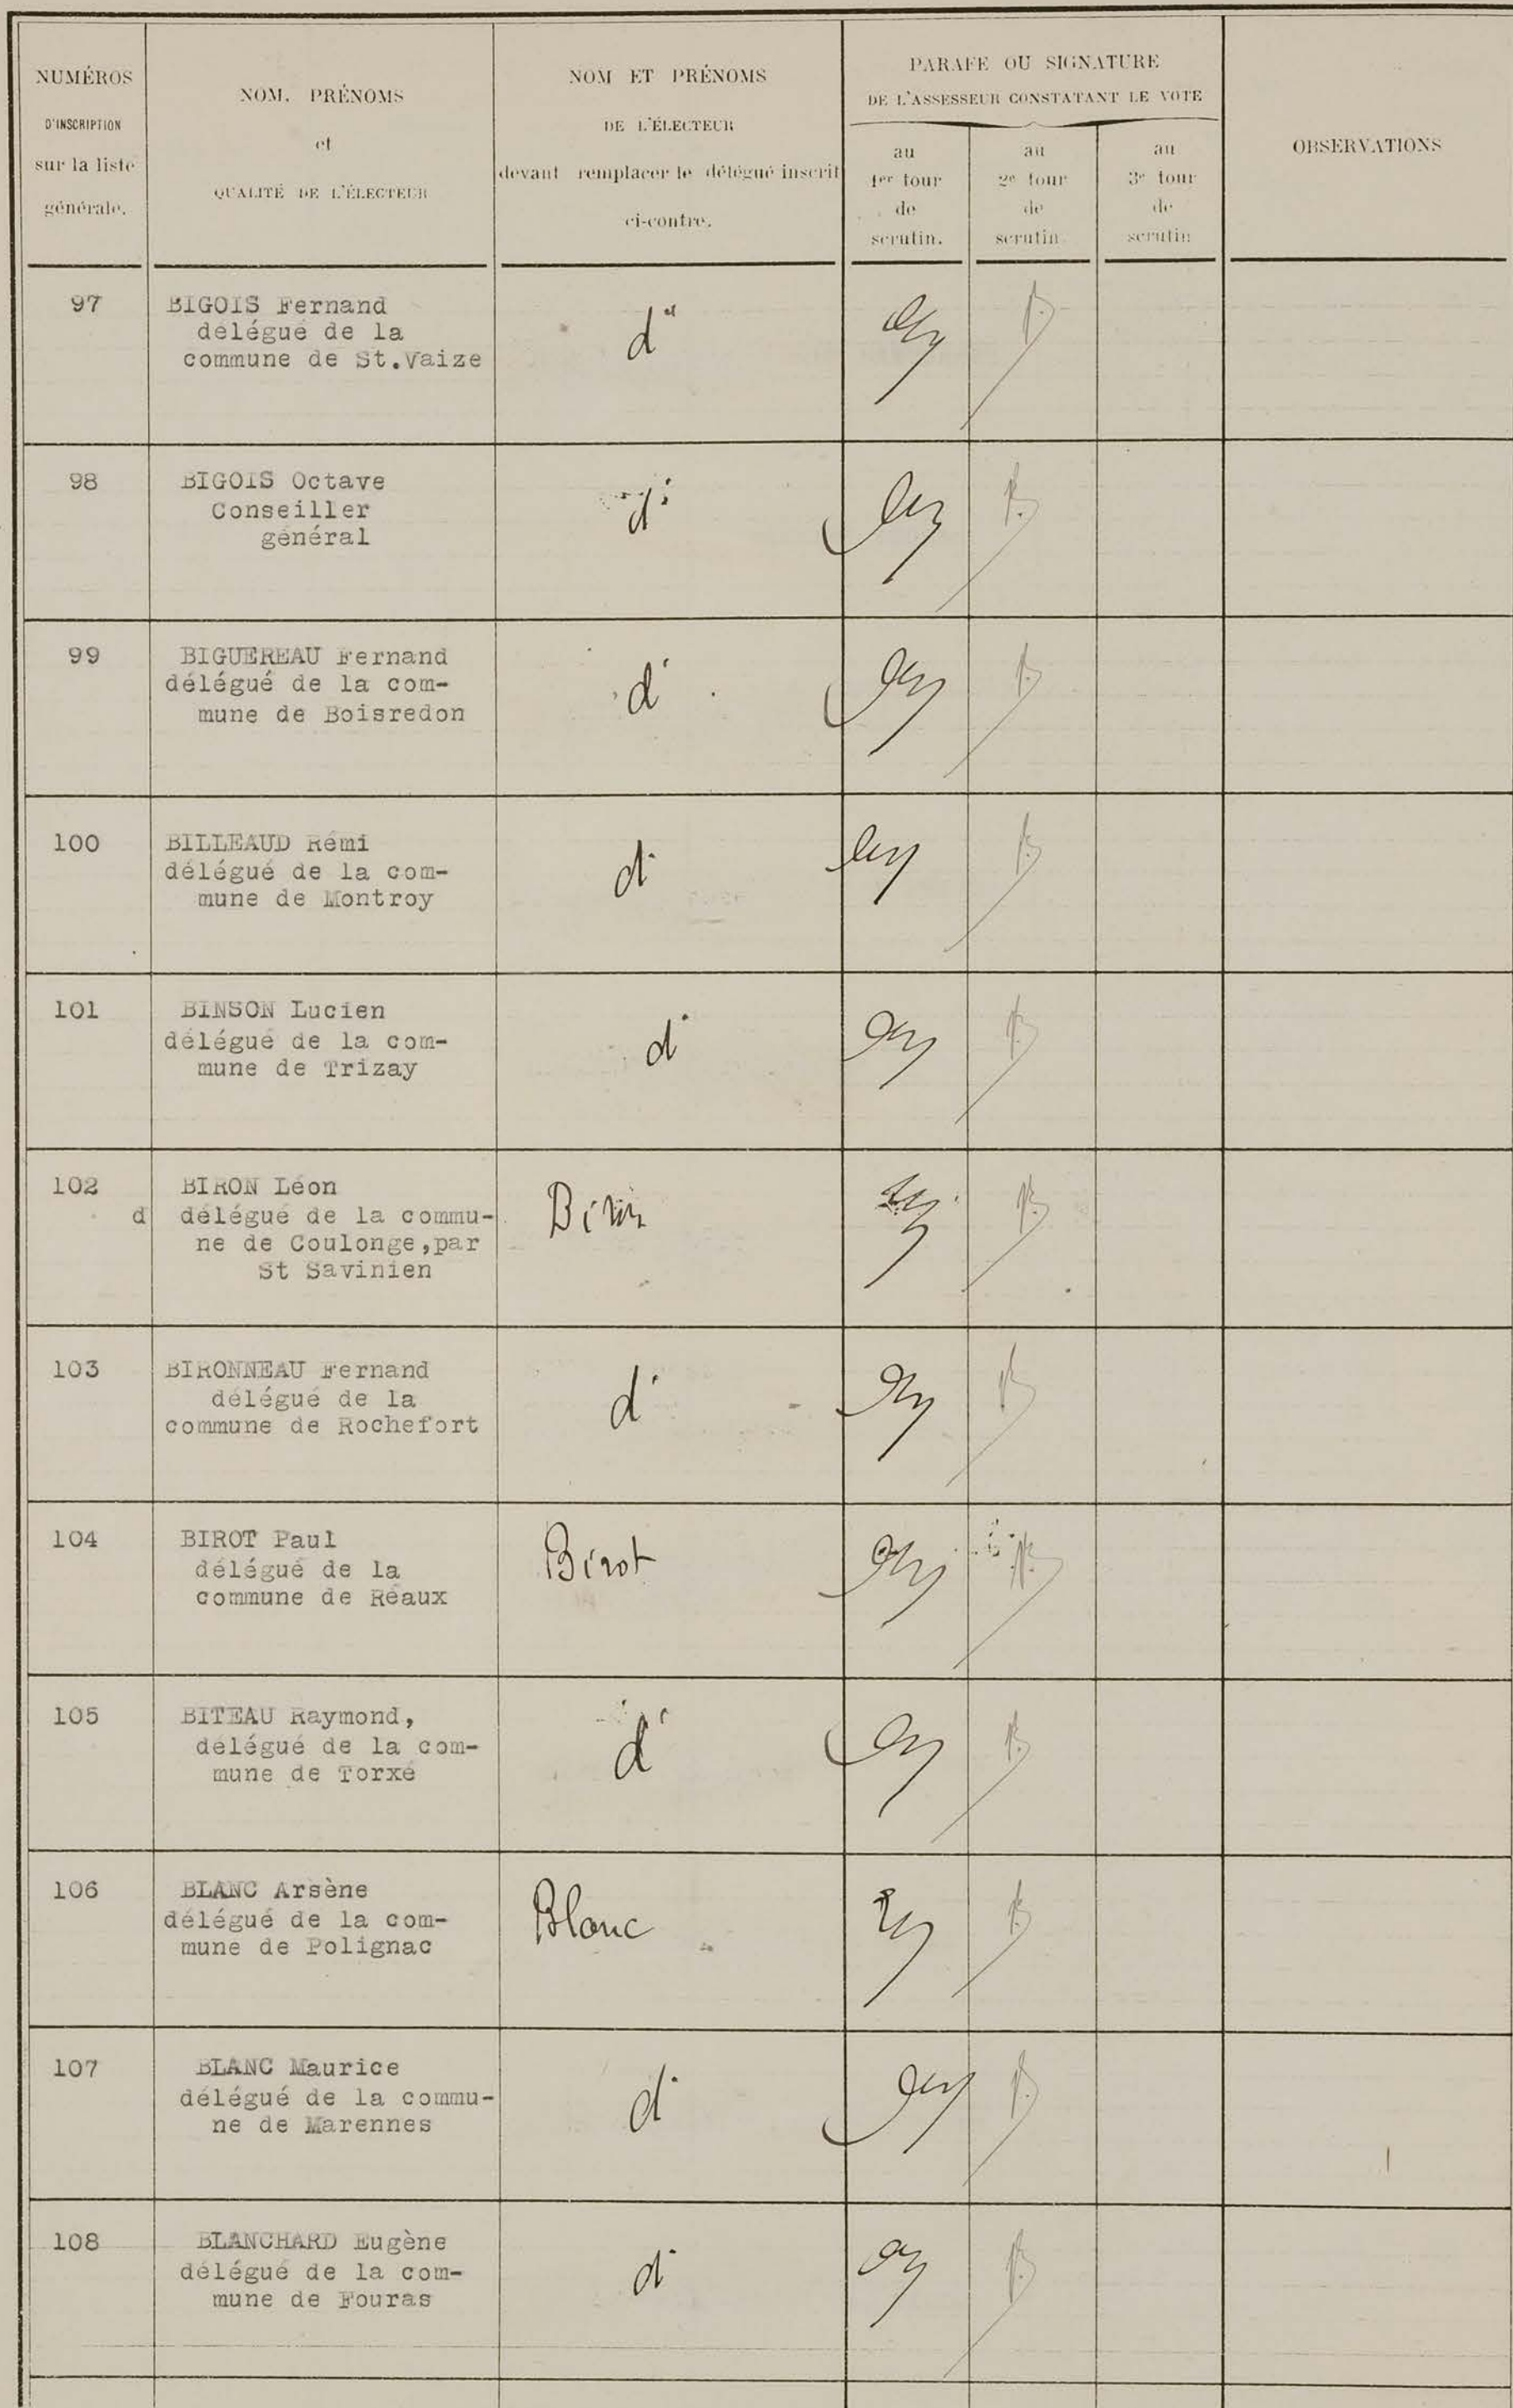 NUMÉROS
D'INSCRIPTION
sur la liste
générale.
NOM, PRÉNOMS
et
QUALITÉ DE L'ÉLECTEUR
NOM ET PRÉNOMS
DE L'ÉLECTEUR
devant remplacer le délégué inscrit
ci-contre.
PARAFE OU SIGNATURE
DE L'ASSESSEUR CONSTATANT LE VOTE
au
1er tour
de
scrutin.
au
2e tour
de
scrutin
au
3e tour
de
scrutin
OBSERVATIONS
97
BIGOIS Fernand
délégué de la
commune de St.Vaize
d°
98
BIGOIS Octave
Conseiller
général
d°
99
BIGUEREAU Fernand
délégué de la com-
mune de Boisredon
d°
100
BILLEAUD Rémi
délégué de la com-
mune de Montroy
d°
101
BINSON Lucien
délégué de la com-
mune de Trizay
d°
102
BIRON Léon
d délégué de la commu-
ne de Coulonge,par
St Savinien
Biron
103
BIRONNEAU Fernand
délégué de la
commune de Rochefort
d°
104
BIROT Paul
délégué de la
commune de Réaux
Birot
105
BITEAU Raymond,
délégué de la com-
mune de Torxé
d°
106
BLANC Arsène
délégué de la com-
mune de Polignac
Blanc
107
BLANC Maurice
délégué de la commu-
ne de Marennes
d°
108
BLANCHARD Eugène
délégué de la com-
mune de Fouras
d°